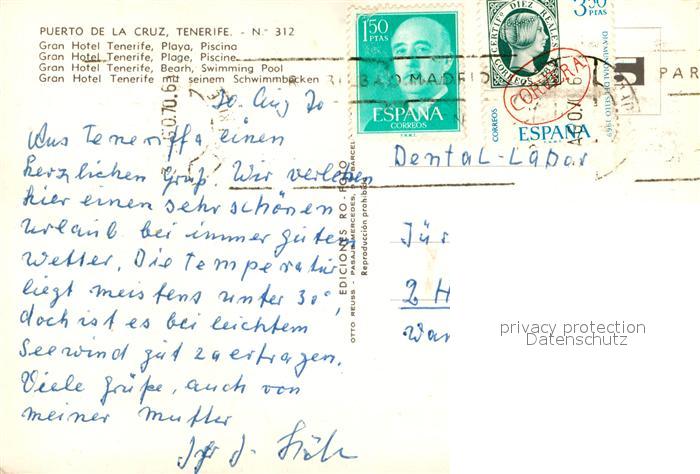 PUERTO DE LA CRUZ, TENERIFE. - N.° 312
Gran Hotel Tenerife, Playa, Piscina
Gran Hotel Tenerife, Plage, Piscine
Gran Hotel Tenerife, Bearh, Swimming Pool
Gran Hotel Tenerife mit seinem Schwimmbecken
30. Aug 70
Aus Teneriffa einen
herzlichen Gruß. Wir verleben
hier einen sehr schönen
Urlaub bei immer gutem
Wetter. Die Temperatur
liegt meistens unter 30°,
doch ist es bei leichtem
Seewind gut zu ertragen.
Viele Grüße, auch von
meiner Mutter
EDICIONES RO-FOTO
OTTO REUSS - PASAJE MERCEDES, BARCEL
Reproducción prohibida
1'50 PTAS
ESPAÑA
CORREOS
F.N.M.T.
3'50 PTAS
CERTDO DIEZ REALES
CORREOS
CORVERA
DIA MUNDIAL DEL SELLO 1969
CORREOS
ESPAÑA
BILBAO, MADRID
PAR
Dental-Labor
Jür
2 H
War
privacy protection
Datenschutz